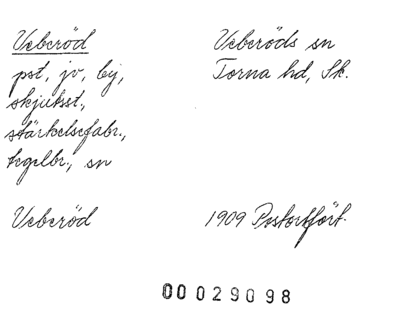 Veberöd
pst, jv, by,
skjutsst,
stärkelsefabr.,
tegelbr., sn
Veberöds sn
Torna hd, Sk.
Veberöd
1909 Postortfört.
00029098